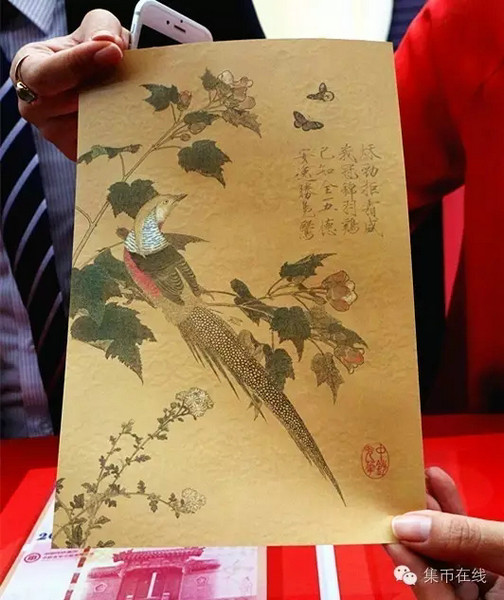 秋勁拒霜盛
峩冠錦羽鷄
已知全五德
安逸勝鳧鷖
集币在线